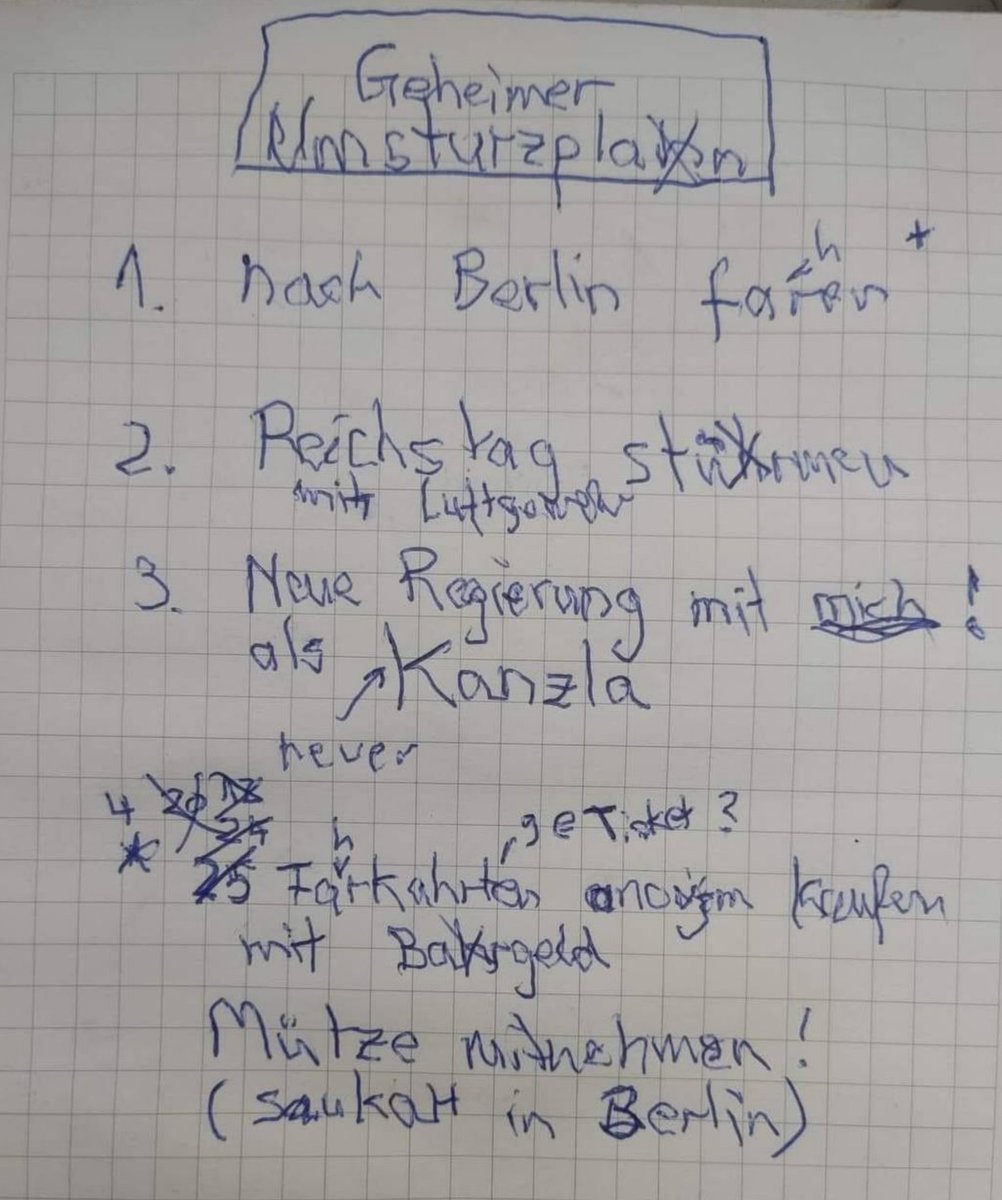 Geheimer
Umsturzplan
1. nach Berlin fahren *
2. Reichstag stürmen
mit
3. Neue Regierung mit mich!
als Kanzla
neuer
4
,9 € Ticket?
* Fahrkahrten anonym kaufen
mit Bargeld
Mütze mitnehmen!
(saukalt in Berlin)